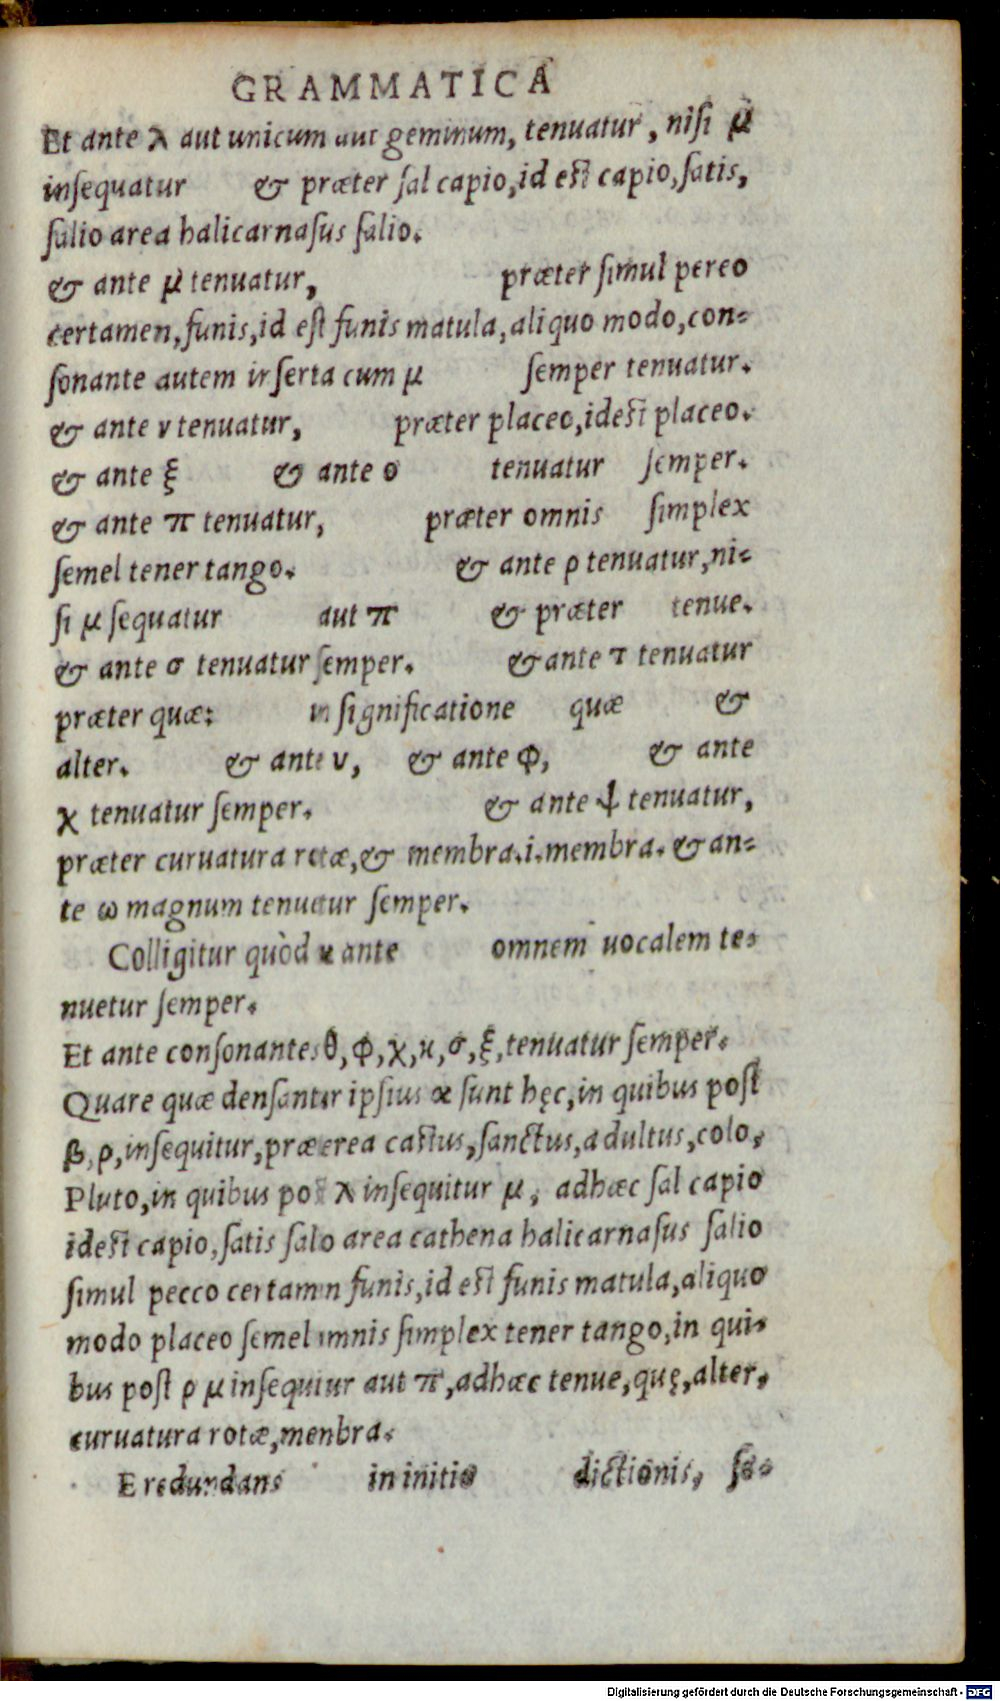 GRAMMATICA
Et ante λ aut unicum aut geminum, tenuatur, niſi μ
inſequatur & præter ſal capio, id eſt capio, ſatis,
ſalio area halicarnaſus ſalio.
& ante μ tenuatur, præter ſimul pereo
certamen, funis, id eſt funis matula, aliquo modo, con-
ſonante autem inſerta cum μ ſemper tenuatur.
& ante ν tenuatur, præter placeo, ideſt placeo.
& ante ξ & ante ο tenuatur ſemper.
& ante π tenuatur, præter omnis ſimplex
ſemel tener tango. & ante ρ tenuatur, ni-
ſi μ ſequatur aut π & præter tenue.
& ante σ tenuatur ſemper. & ante τ tenuatur
præter quæ: in ſignificatione quæ &
alter. & ante υ, & ante φ, & ante
χ tenuatur ſemper. & ante ψ tenuatur,
præter curuatura rotæ, & membra.i.membra. & an-
te ω magnum tenuatur ſemper.
Colligitur quòd κ ante omnem uocalem te-
nuetur ſemper.
Et ante conſonantes θ, φ, χ, κ, σ, ξ, tenuatur ſemper.
Quare quæ denſantur ipſius α ſunt hęc, in quibus poſt
β, ρ, inſequitur, præterea caſtus, ſanctus, adultus, colo,
Pluto, in quibus poſt λ inſequitur μ, adhæc ſal capio
ideſt capio, ſatis ſalo area cathena halicarnaſus ſalio
ſimul pecco certamen funis, id eſt funis matula, aliquo
modo placeo ſemel omnis ſimplex tener tango, in qui-
bus poſt ρ μ inſequitur aut π, adhæc tenue, quę, alter,
curuatura rotæ, menbra.
E redundans in initio dictionis, ſe-
Digitalisierung gefördert durch die Deutsche Forschungsgemeinschaft - DFG